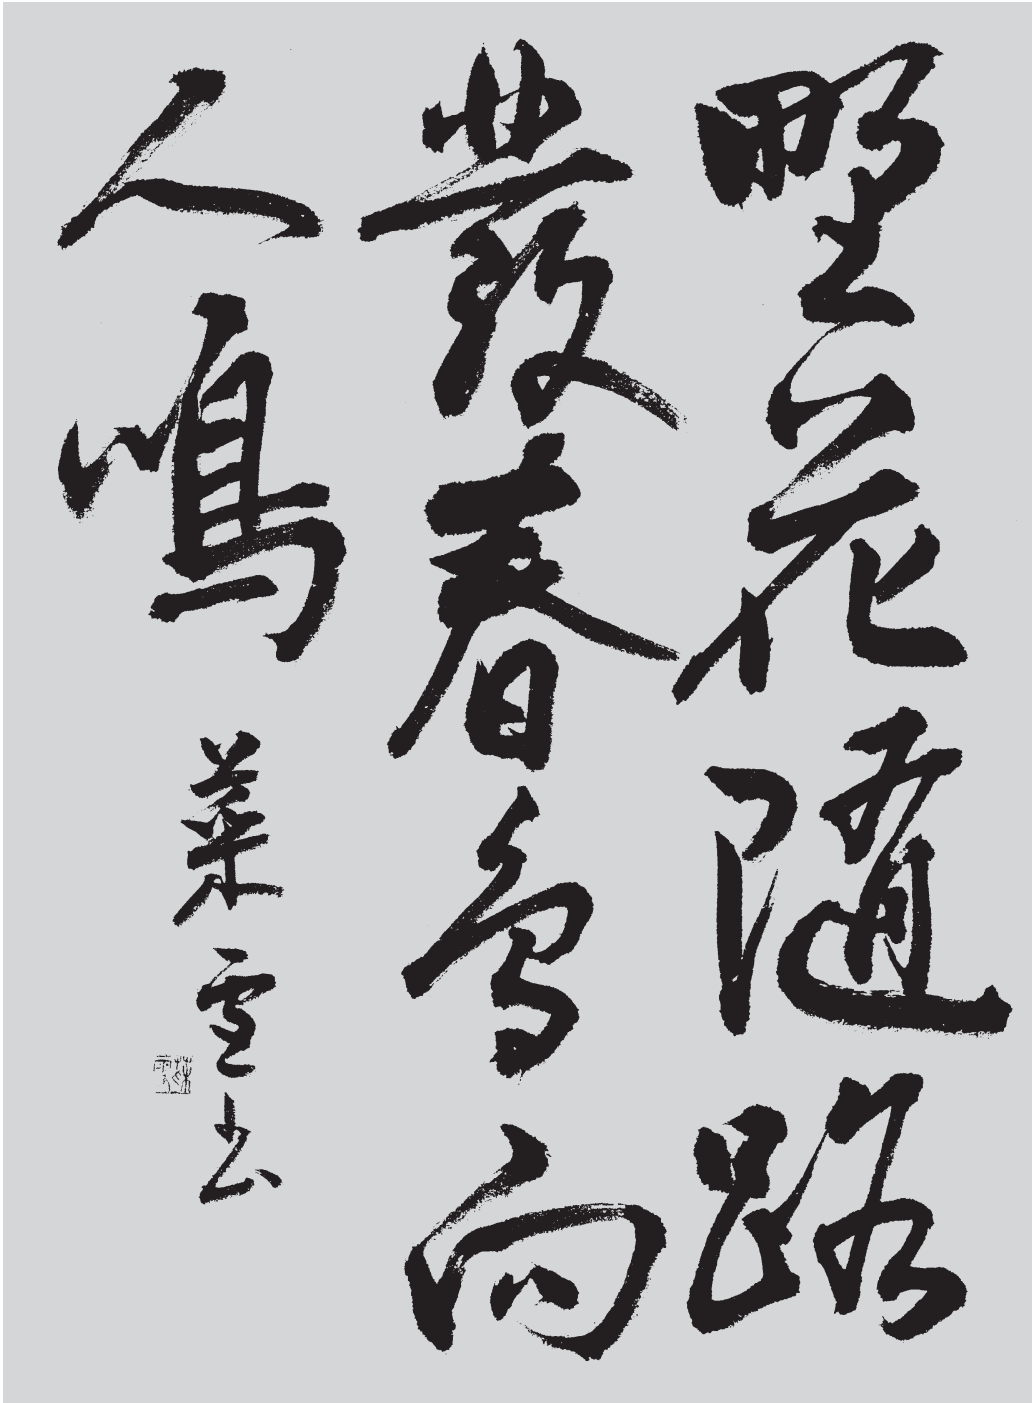 野花隨路
發春鳥向
人鳴
菜雪書